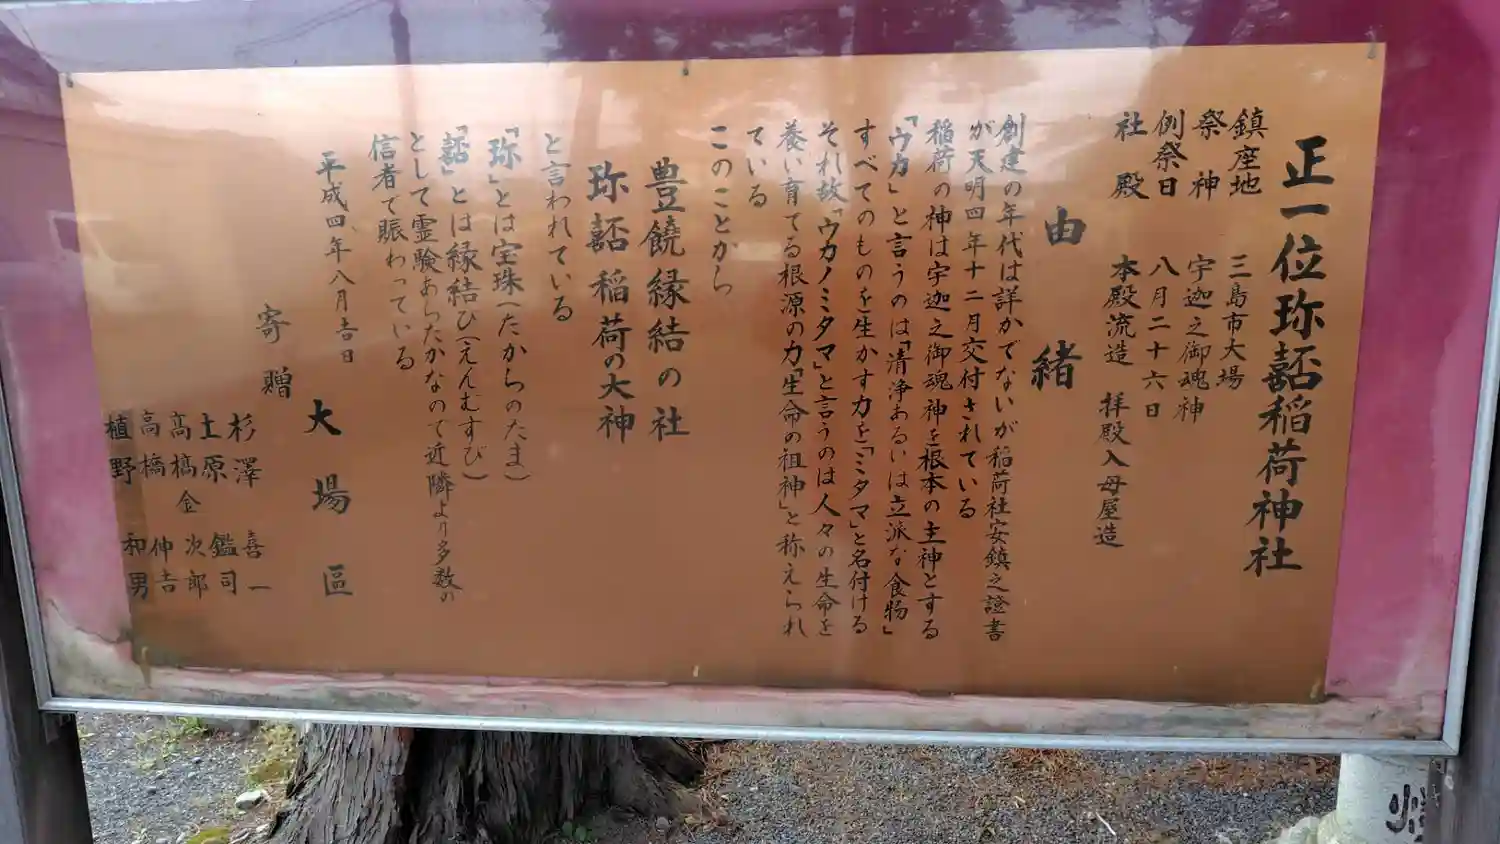 正一位珎嚭稲荷神社
鎮座地　三島市大場
祭神　宇迦之御魂神
例祭日　八月二十六日
社殿　本殿流造　拝殿入母屋造
由緒
創建の年代は詳かでないが稲荷社安鎮之證書
が天明四年十二月交付されている
稲荷の神は宇迦之御魂神を根本の主神とする
「ウカ」と言うのは「清浄あるいは立派な食物」
すべてのものを生かす力を「ミタマ」と名付ける
それ故「ウカノミタマ」と言うのは人々の生命を
養い育てる根源の力「生命の祖神」と称えられ
ている
このことから
豊饒縁結の社
珎嚭稲荷の大神
と言われている
「珎」とは宝珠（たからのたま）
「嚭」とは縁結び（えんむすび）
として霊験あらたかなので近隣より多数の
信者で賑わっている
平成四年八月吉日
大場區
寄贈
杉澤喜一
土原鑑司
髙橋金次郎
高橋仲吉
植野和男